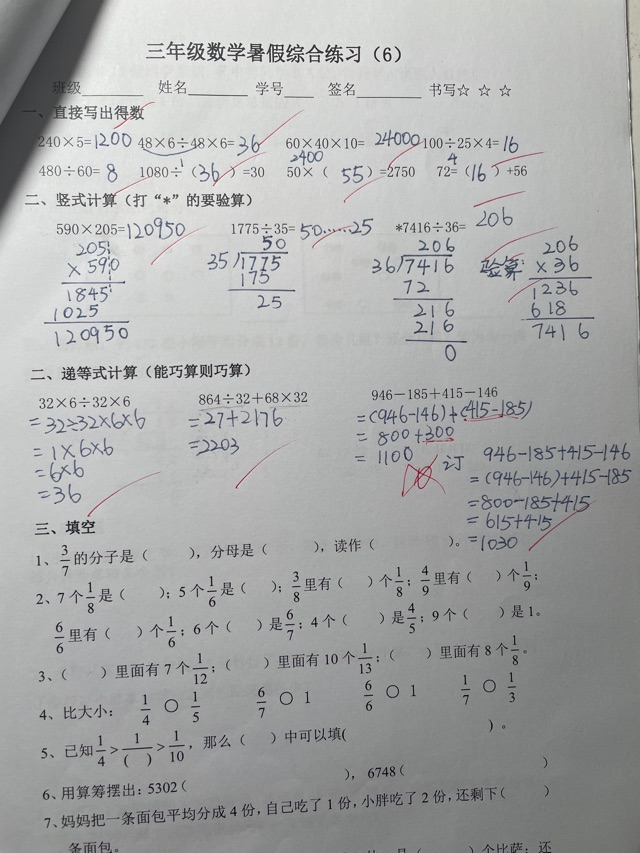 三年级数学暑假综合练习（6）
班级________ 姓名________ 学号____ 签名________ 书写☆ ☆ ☆
一、直接写出得数
240×5=1200 48×6÷48×6=36 60×40×10=24000 100÷25×4=16
480÷60=8 1080÷（36）=30 50×（55）=2750 72=（16）+56
二、竖式计算（打“*”的要验算）
590×205=120950 1775÷35=50……25 *7416÷36=206
205 50 206 验算: 206
×590 35)1775 36)7416 ×36
1845 175 72 1236
1025 25 216 618
120950 216 7416
0
二、递等式计算（能巧算则巧算）
32×6÷32×6 864÷32+68×32 946－185+415－146
=32÷32×6×6 =27+2176 =(946-146)+(415-185)
=1×6×6 =2203 =800+300
=6×6 =1100
=36
订 946-185+415-146
=(946-146)+415-185
=800-185+415
=615+415
=1030
三、填空
1、3/7的分子是（ ），分母是（ ），读作（ ）。
2、7个1/8是（ ）；5个1/6是（ ）；3/8里有（ ）个1/8；4/9里有（ ）个1/9；
6/6里有（ ）个1/6；6个（ ）是6/7；4个（ ）是4/5；9个（ ）是1。
3、（ ）里面有7个1/12；（ ）里面有10个1/13；（ ）里面有8个1/8。
4、比大小： 1/4 ○ 1/5 6/7 ○ 1 6/6 ○ 1 1/7 ○ 1/3
5、已知1/4＞1/( )＞1/10，那么（ ）中可以填( )。
6、用算筹摆出：5302（ ），6748（ ）
7、妈妈把一条面包平均分成4份，自己吃了1份，小胖吃了2份，还剩下（ ）
条面包。
（ ）个比萨；还